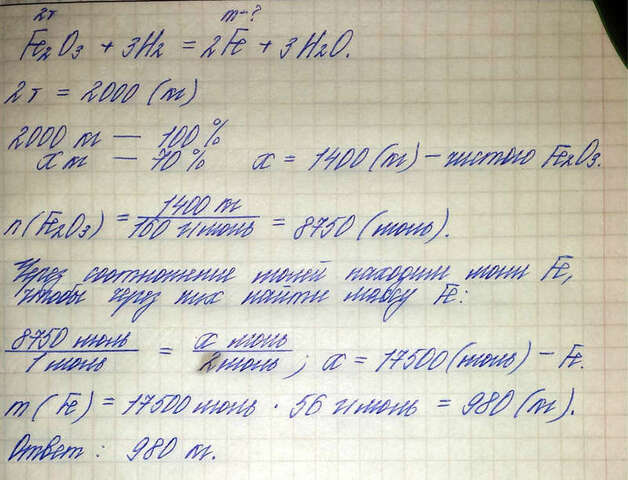 2т m-?
Fe₂O₃ + 3H₂ = 2Fe + 3H₂O.
2т = 2000 (кг)
2000 кг — 100%
x кг — 70% x = 1400 (кг) – чистого Fe₂O₃.
n(Fe₂O₃) = 1400 кг / 160 г/моль = 8750 (моль).
Через соотношение молей находим моли Fe,
чтобы через них найти массу Fe:
8750 моль / 1 моль = x моль / 2 моль ; x = 17500 (моль) – Fe.
m(Fe) = 17500 моль · 56 г/моль = 980 (кг).
Ответ: 980 кг.